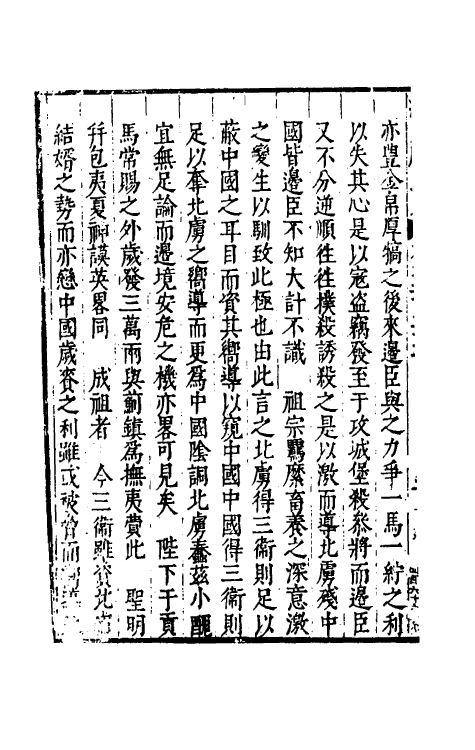 亦豊金帛厚犒之後來邊臣與之力爭一馬一紵之利
以失其心是以宼盗竊發至于攻城堡殺叅將而邊臣
又不分逆順徃徃撲殺誘殺之是以激而導北虜殘中
國皆邊臣不知大計不識　祖宗羈縻畜養之深意激
之變生以馴致此極也由此言之北虜得三衛則足以
蔽中國之耳目而資其嚮導以窺中國中國得三衛則
足以奪北虜之嚮導而更爲中國陰詗北虜蠢茲小醜
宜無足論而邊境安危之機亦畧可見矣　陛下于貢
馬常賜之外歲發三萬兩與薊鎮爲撫夷費此　聖明
幷包夷夏神謨英畧同　成祖者　今三衛雖
結婿之勢而亦戀中國歲賚之利雖或被脅而